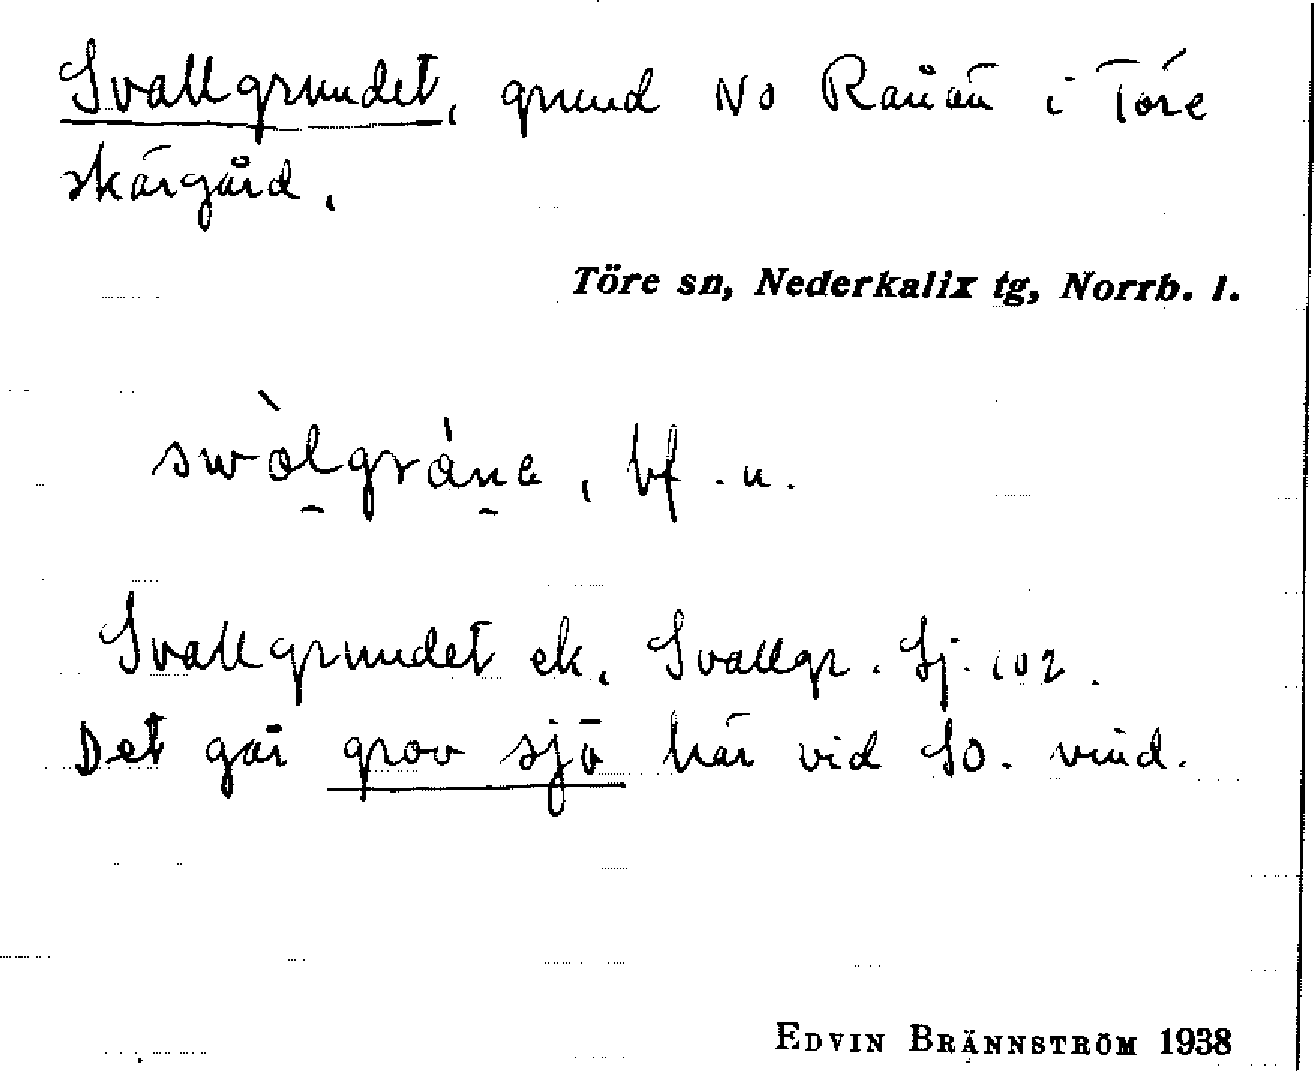 Svallgrundet, grund NO Rånön i Töre
skärgård.
Töre sn, Nederkalix tg, Norrb. l.
swòlgrána, bf. n.
Svallgrundet ek. Svallgr. Sj. 102.
Det går grov sjö här vid SO. vind.
EDVIN BRÄNNSTRÖM 1938